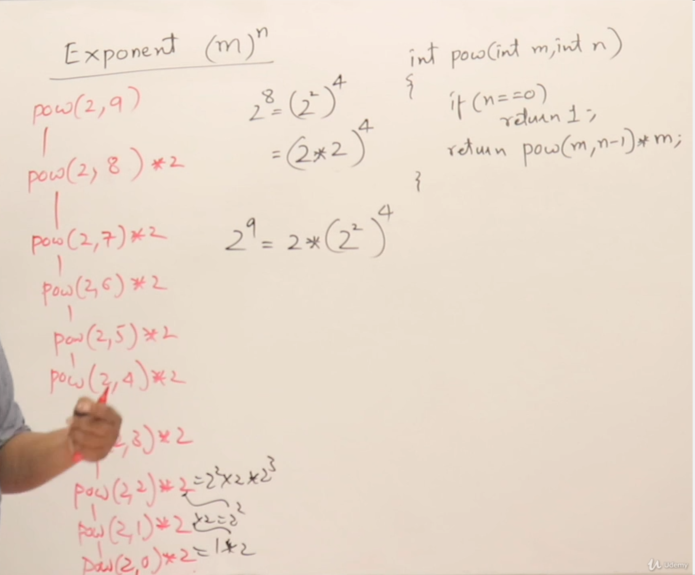 Exponent (m)ⁿ
pow(2,9)
pow(2,8)*2
pow(2,7)*2
pow(2,6)*2
pow(2,5)*2
pow(2,4)*2
2,3)*2
pow(2,2)*2=2²×2*2³
pow(2,1)*2×2=2²
pow(2,0)*2=1*2
2⁸=(2²)⁴
=(2*2)⁴
2⁹=2*(2²)⁴
int pow(int m,int n)
{
if(n==0)
return 1;
return pow(m,n-1)*m;
}
Udemy